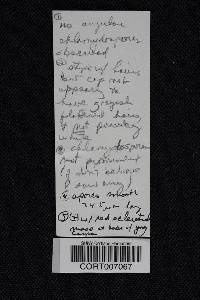 ① no angular
chlamydospores
observed
② stipe w/ hairs
but cap not
appears to
have grayish
flattened hairs
& not powdery
white
③ chlamydospores
not prominent
(I don't believe
I saw any)
④ spores smooth
7 x 5 µm long
w/ red
at base of
CORT007067